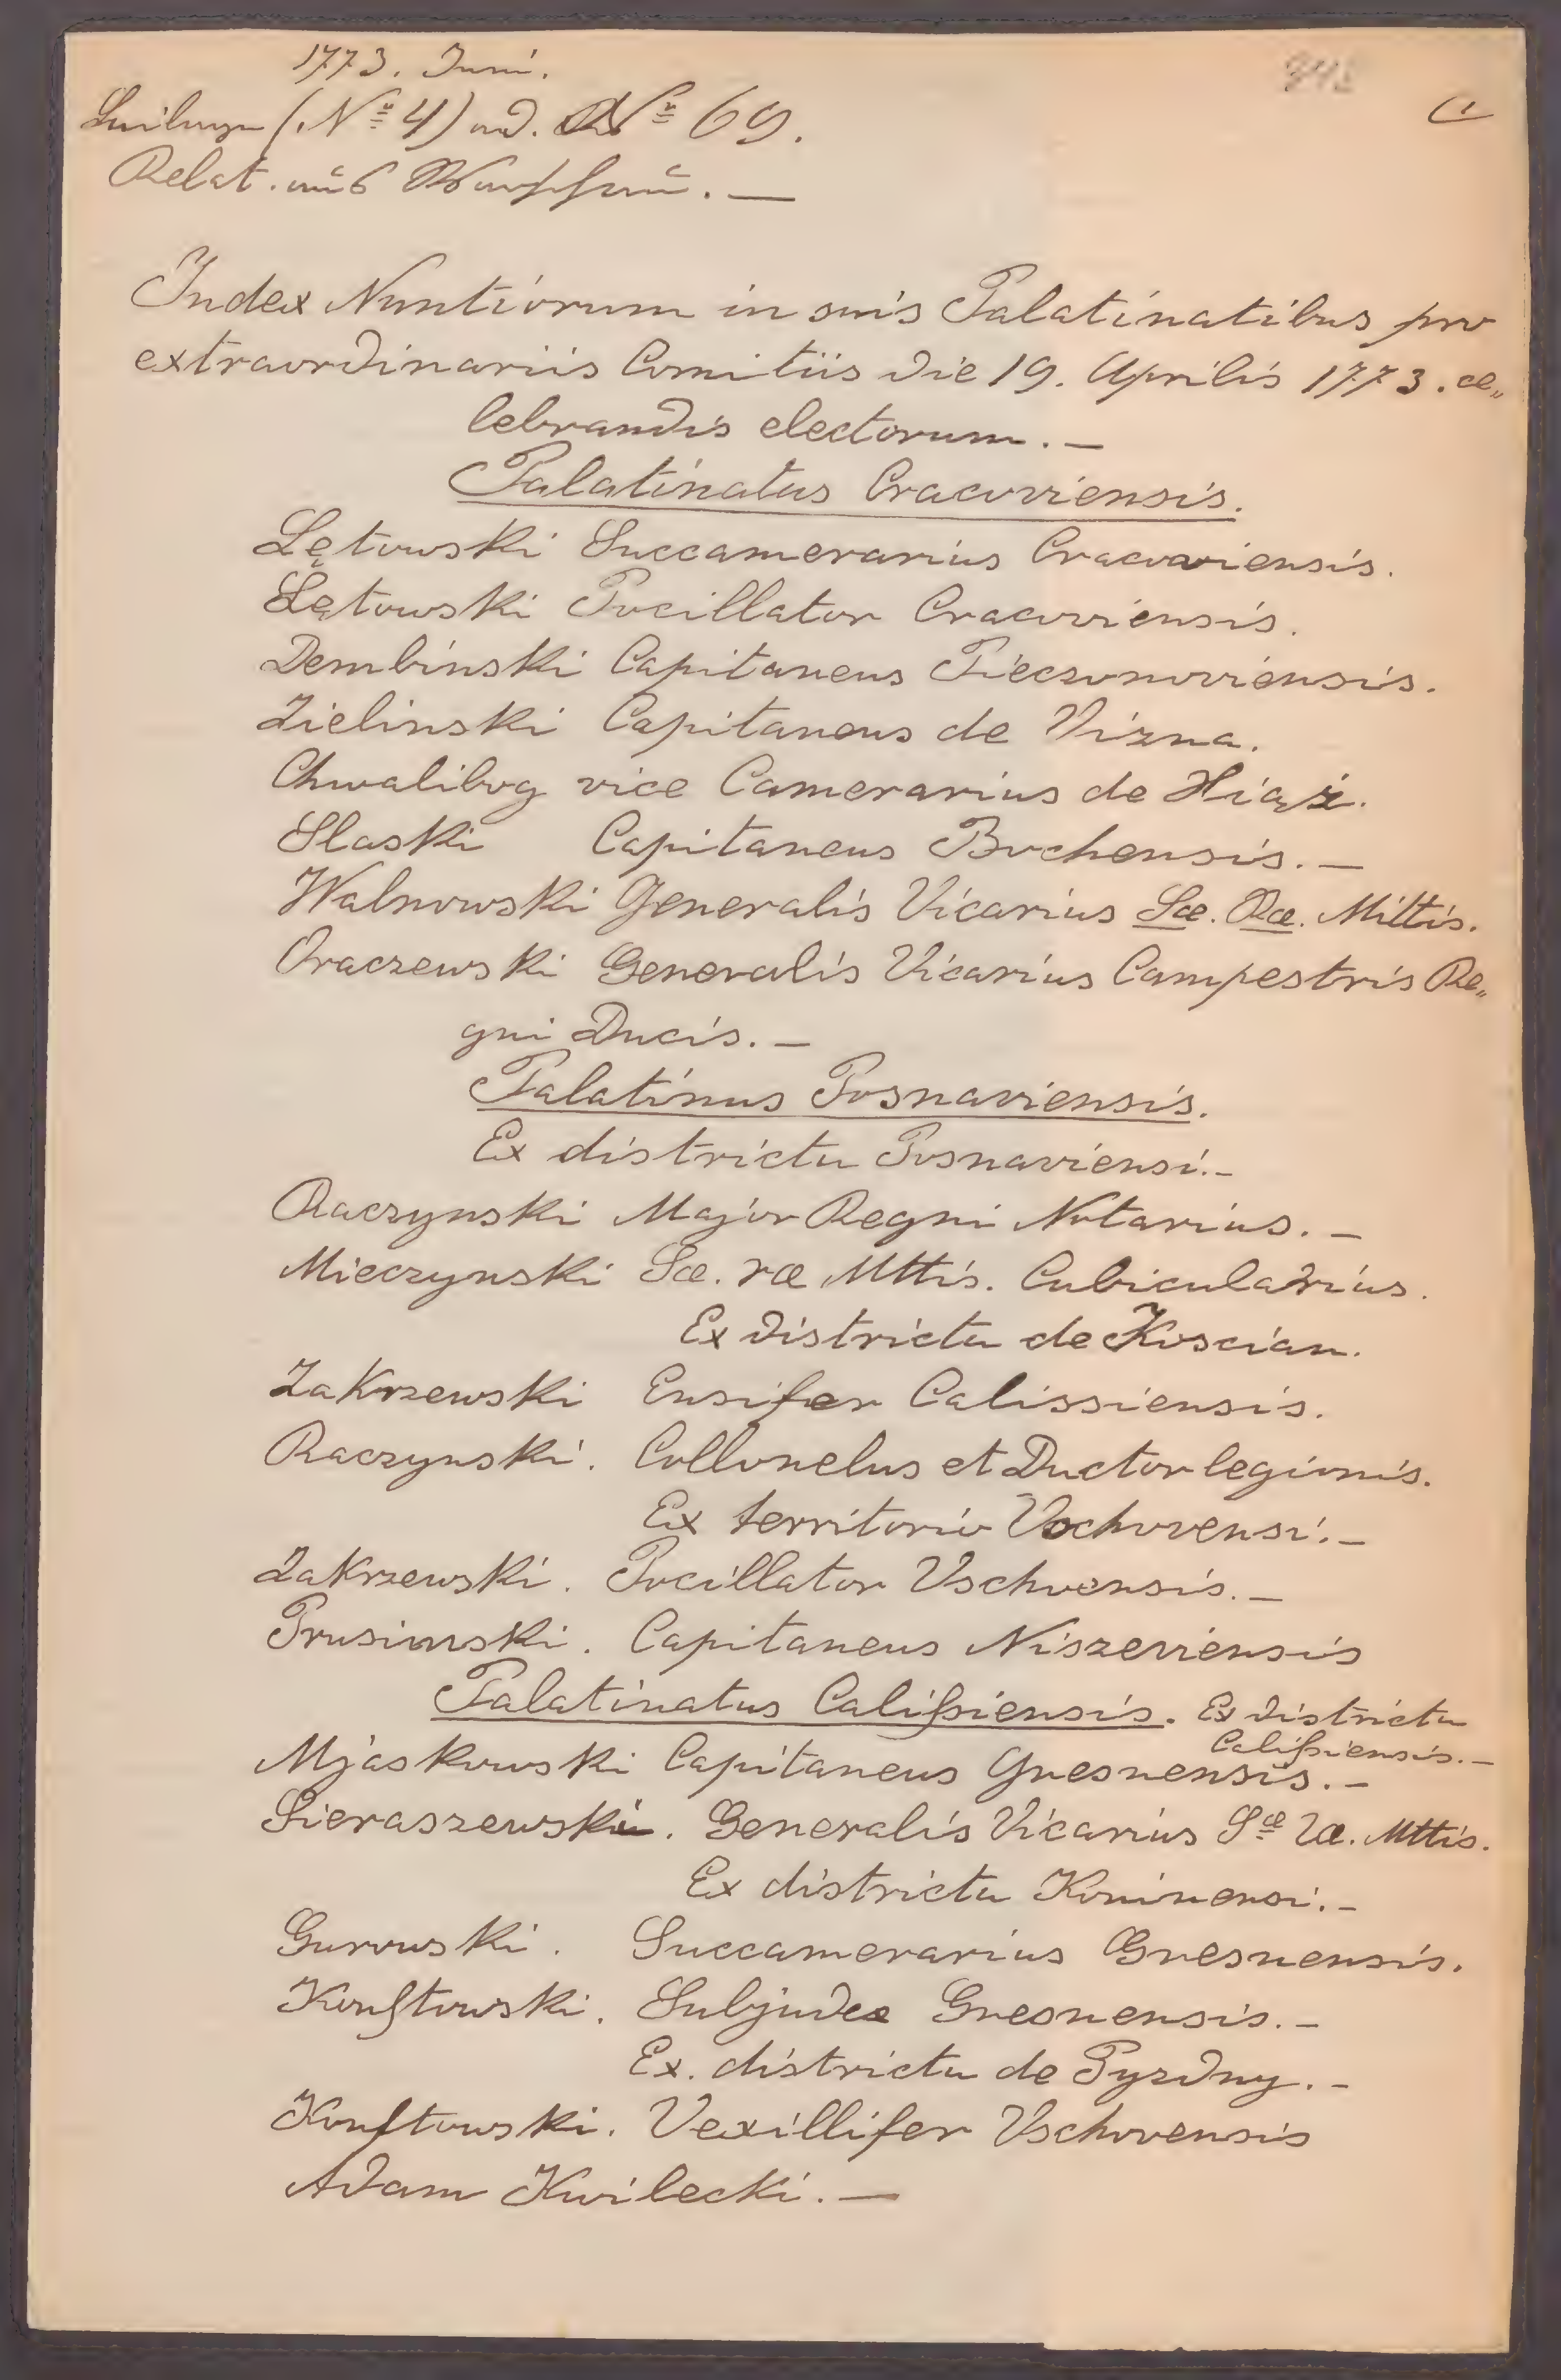 1773. Juni.
Beilage (Nº 4) ad. Nº 69.
Relat. aus Warschau. —
Index Nuntiorum in suis Palatinatibus pro
extraordinariis Comitiis die 19. Aprilis 1773. ce„
lebrandis electorum. —
Palatinatus Cracoviensis.
Lętowski Succamerarius Cracoviensis.
Lętowski Pocillator Cracoviensis.
Dembinski Capitaneus Pieczonoviensis.
Zielinski Capitaneus de Vizna.
Chwalibog vice Camerarius de Xiąż.
Slaski Capitaneus Bochensis. —
Walnowski Generalis Vicarius Sæ. Ræ. Mittis.
Oraczewski Generalis Vicarius Campestris Re„
gni Ducis. —
Palatinus Posnaviensis.
Ex districtu Posnaviensi. —
Raczynski Major Regni Notarius. —
Mieczynski Sæ. ræ Mttis. Cubicularius.
Ex districtu de Koscian.
Zakrzewski Ensifer Calissiensis.
Raczynski. Collonelus et Ductor legionis.
Ex territorio Vschovensi. —
Zakrzewski. Pocillator Vschoensis. —
Prusimski. Capitaneus Niszeviensis
Palatinatus Calißiensis. Ex districtu
Calißiensis. —
Mjaskowski Capitaneus Gnesnensis. —
Sieraszewski. Generalis Vicarius Sæ Ræ. Mttis.
Ex districtu Koninensi. —
Gurowski. Succamerarius Gnesnensis.
Konſtowski. Subjudex Gnesnensis. —
Ex. districtu de Pyzdny. —
Konſtowski. Vexillifer Vschovensis
Adam Kwilecki. —